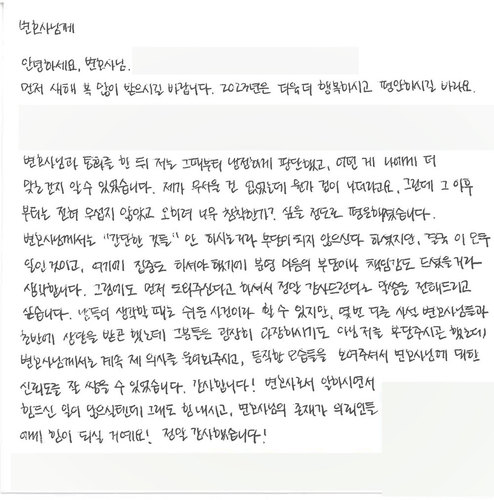 변호사님께
안녕하세요, 변호사님.
먼저 새해 복 많이 받으시길 바랍니다. 2023년은 더욱더 행복하시고 평안하시길 바라요.
변호사님과 통화를 한 뒤 저는 그때부터 냉정하게 판단했고, 어떤 게 나에게 더
맞는건지 알 수 있었습니다. 제가 무서울 건 없었는데 뭔가 겁이 나더라고요, 그런데 그 이후
부터는 전혀 무섭지 않았고 오히려 너무 침착한가? 싶을 정도로 평온해졌습니다.
변호사님께서는 "간단한 것들"만 하시는거라 부담이 되지 않으신다 하셨지만, 결국 이 모두
일인 것이고, 여기에 집중도 하셔야 했기에 분명 마음의 부담이나 책임감도 드셨을거라
생각합니다. 그럼에도 먼저 도와주신다고 하셔서 정말 감사드린다고 말씀을 전해드리고
싶습니다. 남들이 생각할 때는 쉬운 사건이라 할 수 있지만, 몇번 다른 사선 변호사님들과
초반에 상담을 받곤 했는데 그분들은 굉장히 다정하시기도 아님 저를 부담주시곤 했는데
변호사님께서는 계속 제 의사를 물어봐주시고, 듬직한 모습들을 보여주셔서 변호사님에 대한
신뢰도를 잘 쌓을 수 있었습니다. 감사합니다! 변호사로서 일하시면서
힘드신 일이 많으실텐데 그래도 힘내시고, 변호사님의 존재가 의뢰인들
에게 힘이 되실 거예요! 정말 감사했습니다!